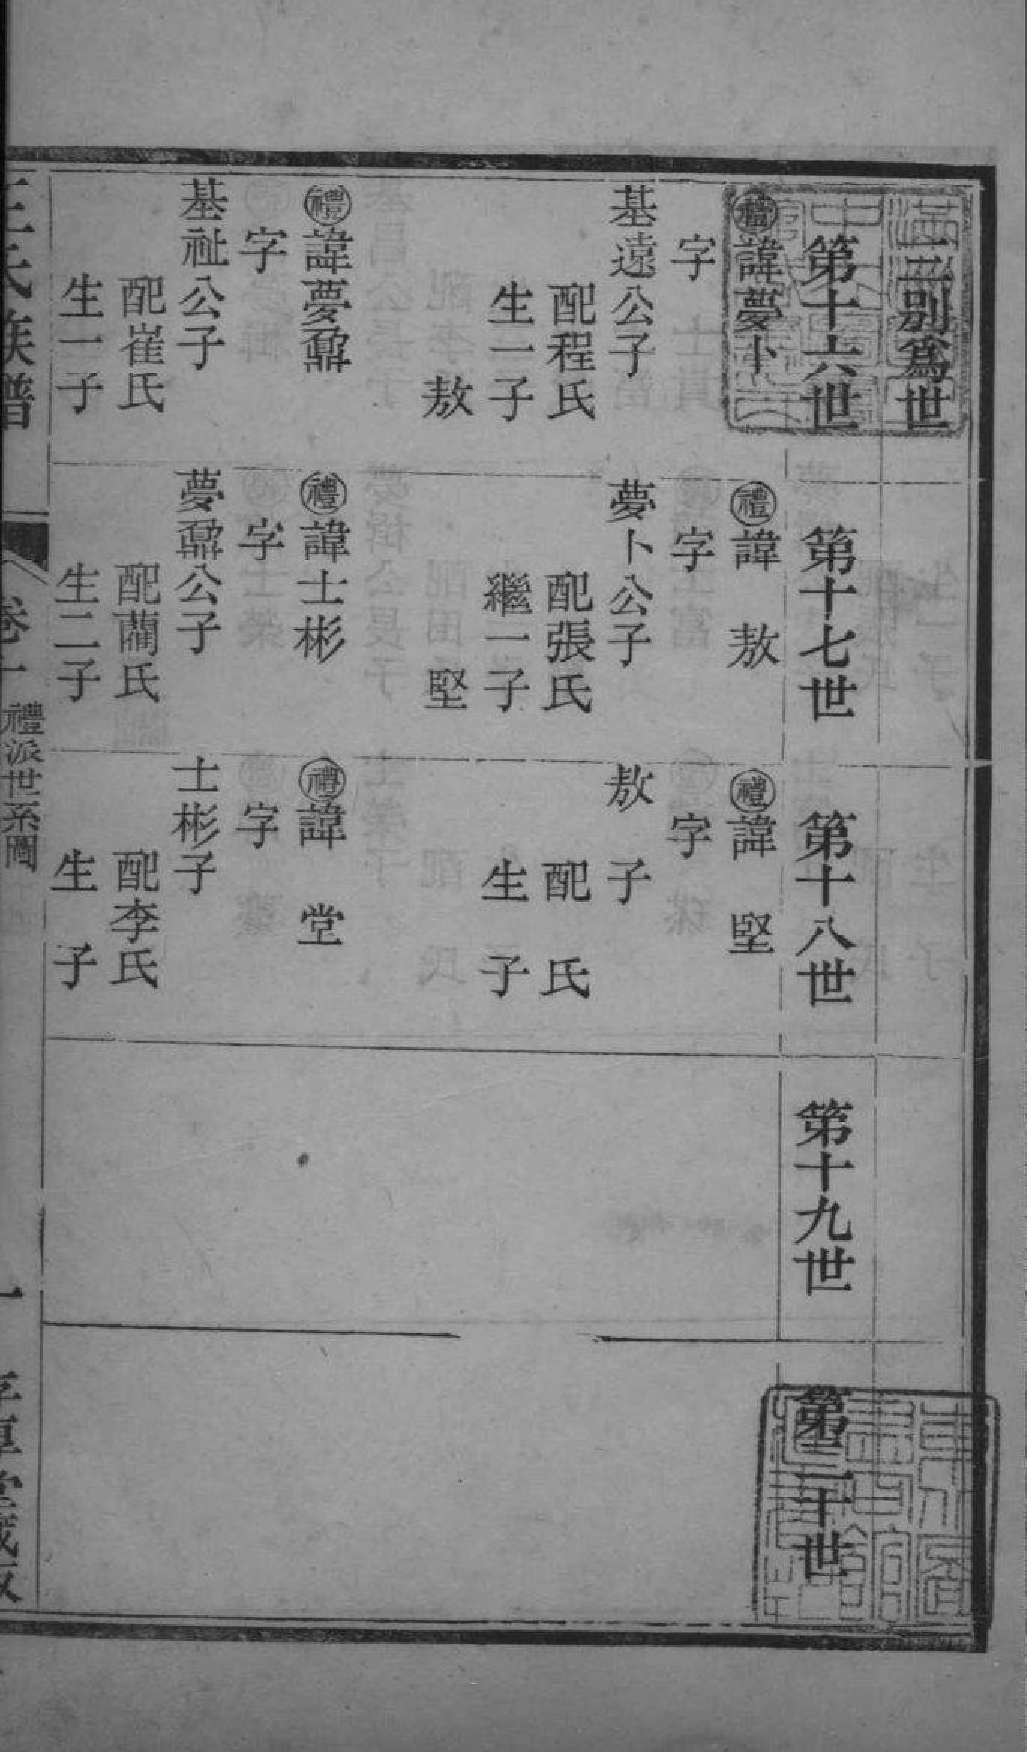 二別爲世
第十六世
第十七世
第十八世
第十九世
第二十世
禮諱夢卜
字
基遠公子
配程氏
生一子
敖
禮諱敖
字
夢卜公子
配張氏
繼一子
堅
禮諱堅
字
敖子
配氏
生子
禮諱夢鼐
字
基祉公子
配崔氏
生一子
禮諱士彬
字
夢鼐公子
配藺氏
生二子
禮諱堂
字
士彬子
配李氏
生子
王氏族譜
卷一
禮派世系圖
一